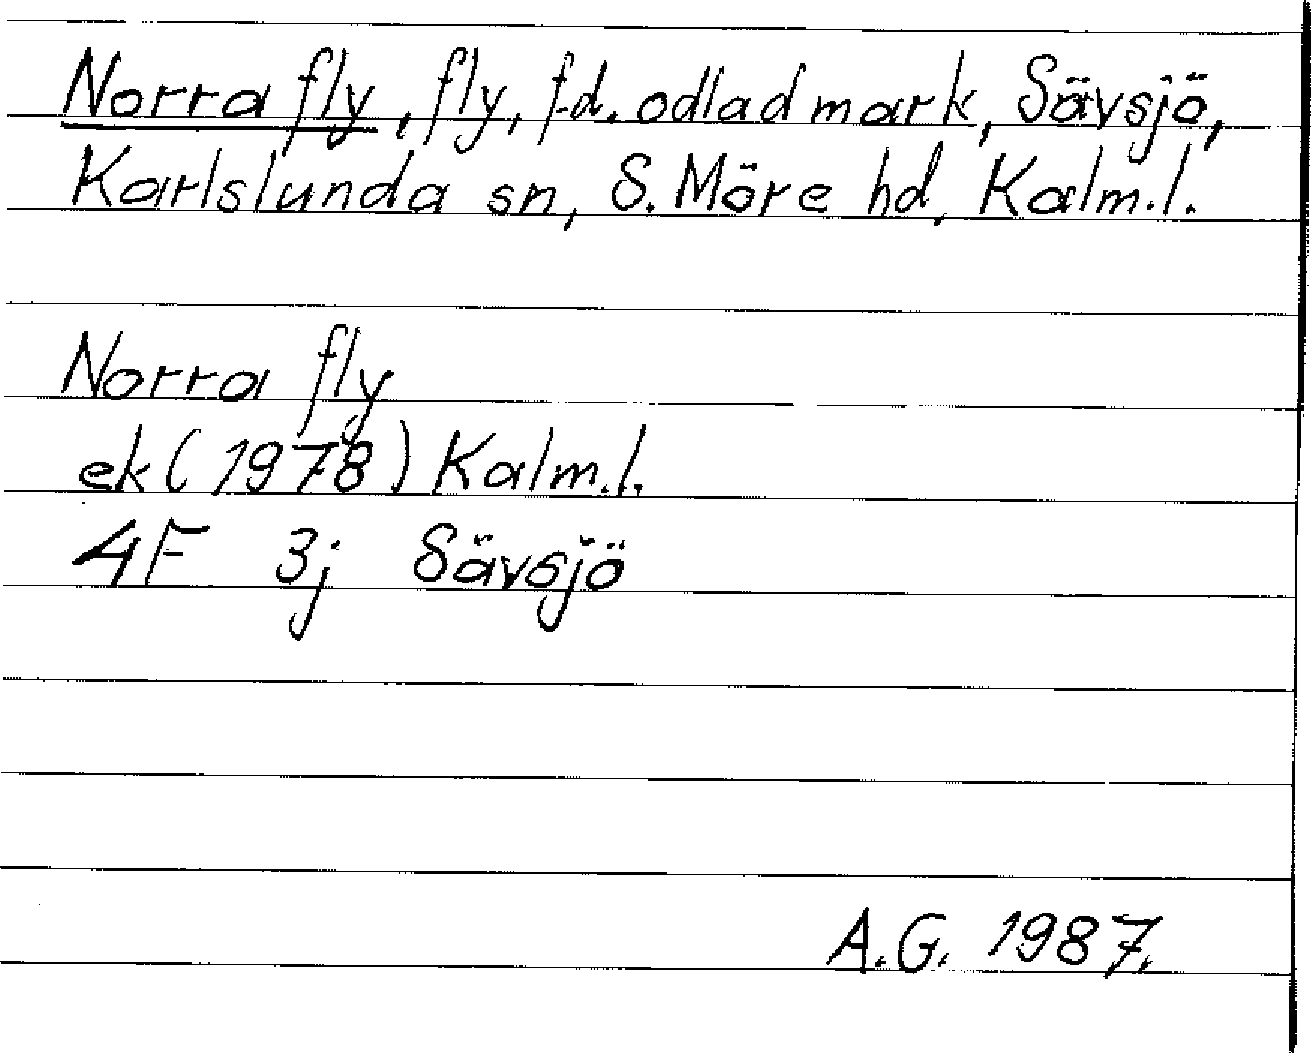 Norra fly, fly, f.d. odlad mark, Sävsjö,
Karlslunda sn, S. Möre hd, Kalm.l.
Norra fly
ek (1978) Kalm.l.
4F 3j Sävsjö
A.G. 1987.